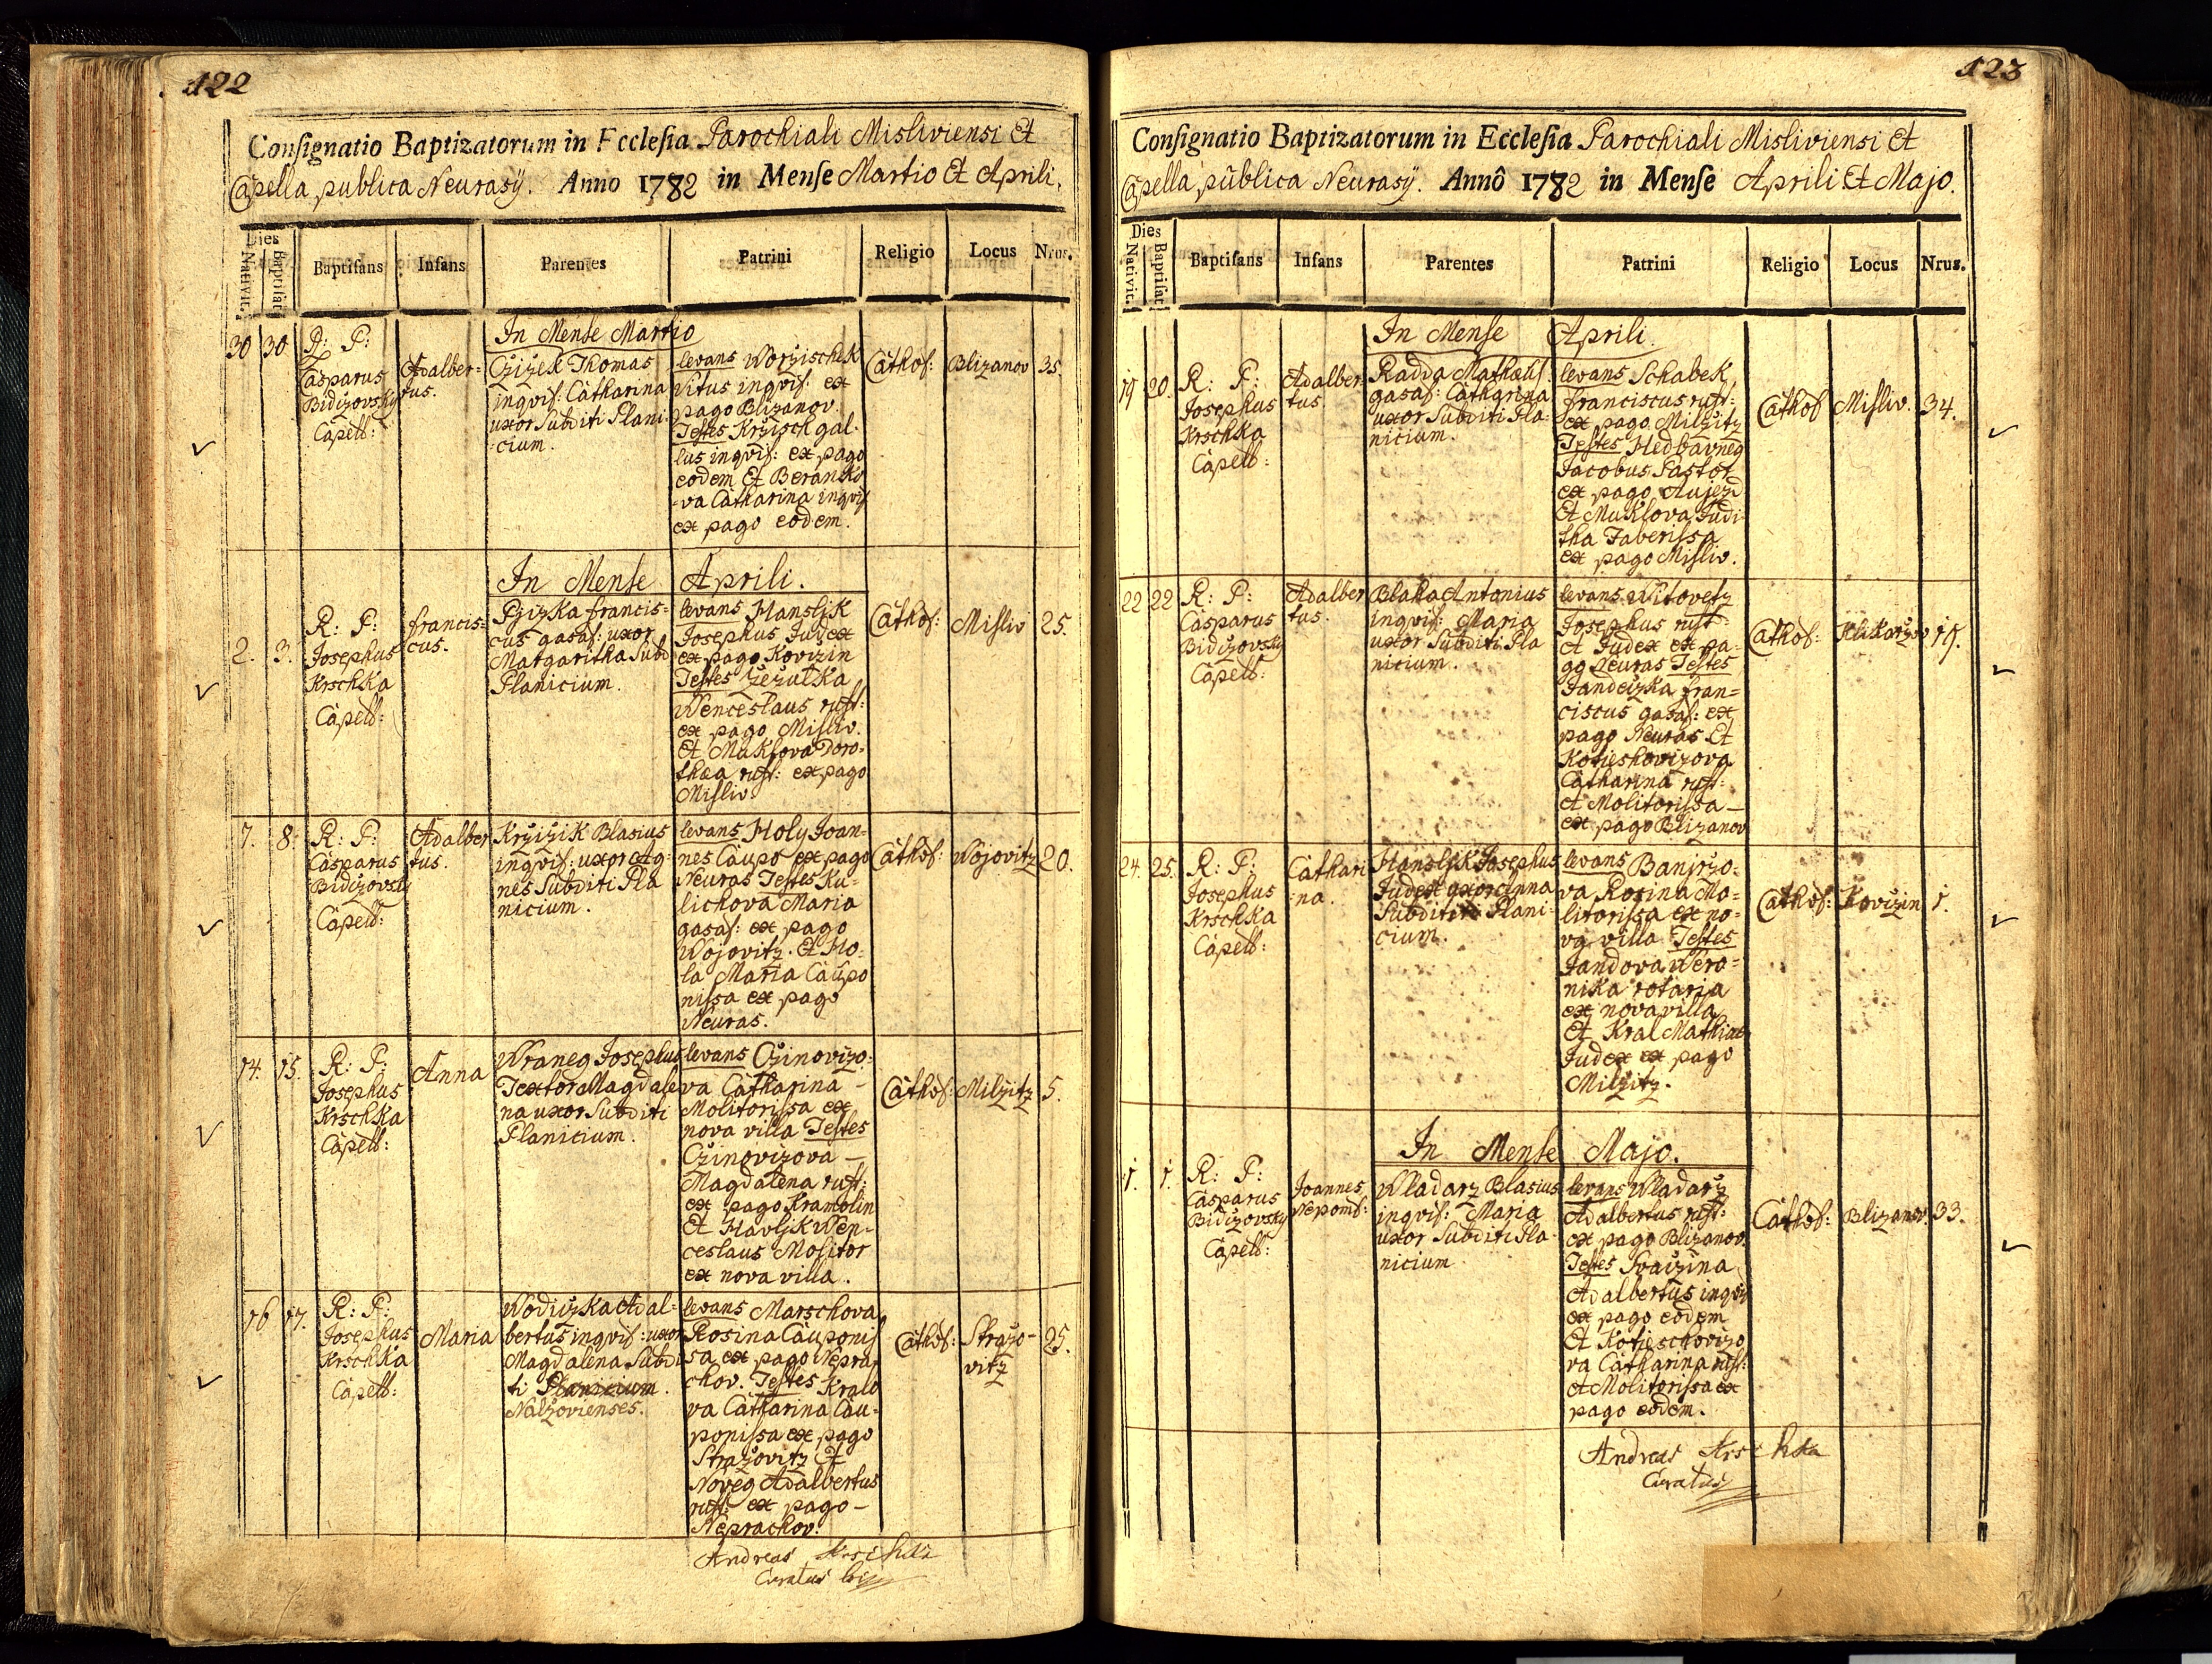 122
Consignatio Baptizatorum in Ecclesia Parochiali Misliviensi Et
Capella publica Neurasÿ. Anno 1782 in Mense Martio Et Aprili.
Dies
Nativit.
Baptisat.
Baptisans
Infans
Parentes
Patrini
Religio
Locus
Nrus.
In Mense Martio
30
30
R: P:
Casparus
Bidizovsky
Capell:
Adalber=
tus.
Czizek Thomas
inqvil: Catharina
uxor Subditi Plani
cium.
levans Worzischek
Vitus inqvil: ex
pago Blizanov.
Testes Krzisch gal-
lus inqvil: ex pago
eodem Et Beransko
va Catharina inqvil
ex pago eodem.
Cathol:
Blizanov
35.
In Mense Aprili.
2.
3.
R: P:
Josephus
Krschka
Capell:
Francis=
cus.
francis=
cus gasal: uxor
Margaritha Subd
Planicium.
levans Hansljk
Josephus Judex
ex pago Kovizin
Testes Zezulka
Wenceslaus rust:
ex pago Misliv.
Et Muksova Doro-
thea rust: ex pago
Misliv.
Cathol:
Misliv
25.
7.
8.
R: P:
Casparus
Bidizovsky
Capell:
Adalber
tus.
Krzizik Blasius
inqvil: uxor Ag-
nes Subditi Pla
nicium.
levans Holy Joan=
nes Caupo ex pago
Neuras Testes Ku-
lichova Maria
gasal: ex pago
Wojovitz. Et Ho-
la Maria Caupo
nissa ex pago
Neuras.
Cathol:
Wojovitz
20.
14.
15.
R: P:
Josephus
Krschka
Capell:
Anna
Wraneg Josephus
Textor Magdale
na uxor Subditi
Planicium.
levans Czinovizo-
va Catharina -
Molitorissa ex
nova villa Testes
Czinovizova -
Magdalena rust:
ex pago Kramolin
Et Havljk Wen-
ceslaus Molitor
ex nova villa.
Cathol:
Milzitz
5.
16
17.
R: P:
Josephus
Krschka
Capell:
Maria
Wodizka Adal=
bertus inqvil: uxor
Magdalena Subdi
ti Planicium.
Nalzovienses.
levans Marschova
Rosina Cauponis
sa ex pago Nepra
chov. Testes Kralo
va Catharina Cau-
ponissa ex pago
Strazovitz Et
Noveg Adalbertus
rust: ex pago -
Neprachov.
Cathol:
Strazo-
vitz
25.
Andreas Krschka
Curatus
123
Consignatio Baptizatorum in Ecclesia Parochiali Misliviensi Et
Capella publica Neurasÿ. Annô 1782 in Mense Aprili Et Majo.
Dies
Nativit.
Baptisat.
Baptisans
Infans
Parentes
Patrini
Religio
Locus
Nrus.
In Mense Aprili.
19
20.
R: P:
Josephus
Krschka
Capell:
Adalber
tus.
Radda Mathæus
gasal: Catharina
uxor Subditi Pla-
nicium.
levans Schabek
Franciscus rust:
ex pago Milzitz
Testes Hedbavneg
Jacobus Pastor
ex pago Aujezd
Et Muksova Judi
tha Faberissa
ex pago Misliv.
Cathol
Misliv.
34.
22
22
R: P:
Casparus
Bidizovsky
Capell:
Adalber
tus.
Blaha Antonius
inqvil: Maria
uxor Subditi Pla
nicium.
levans Witovetz
Josephus rust:
et Judex ex pa-
go Neuras Testes
Jandeizka fran=
ciscus gasal: ex
pago Neuras Et
Kotieshovizova
Catharina rust:
et Molitorissa -
ex pago Blizanov
Cathol:
19.
24.
25.
R: P:
Josephus
Krschka
Capell:
Cathari
-na.
Hansljk Josephus
Judex uxor Anna
Subditi Plani-
cium.
levans Banjrzo-
va Rosina Mo-
litorissa ex no-
va villa Testes
Jandova Wero=
nika rotarja
ex nova villa
Et Kral Mathias
Judex ex pago
Milzitz.
Cathol:
Kovizin
1.
In Mense Majo.
1.
1.
R: P:
Casparus
Bidizovsky
Capell:
Joannes
Nepom:
Wladarz Blasius
inqvil: Maria
uxor Subditi Pla-
nicium
levans Wladarz
Adalbertus rust:
ex pago Blizanov.
Testes Svaizina
Adalbertus inqvil
ex pago eodem
Et Kotieschovizo
va Catharina rust:
et Molitorissa ex
pago eodem.
Cathol:
Blizanov.
33.
Andreas Krschka
Curatus